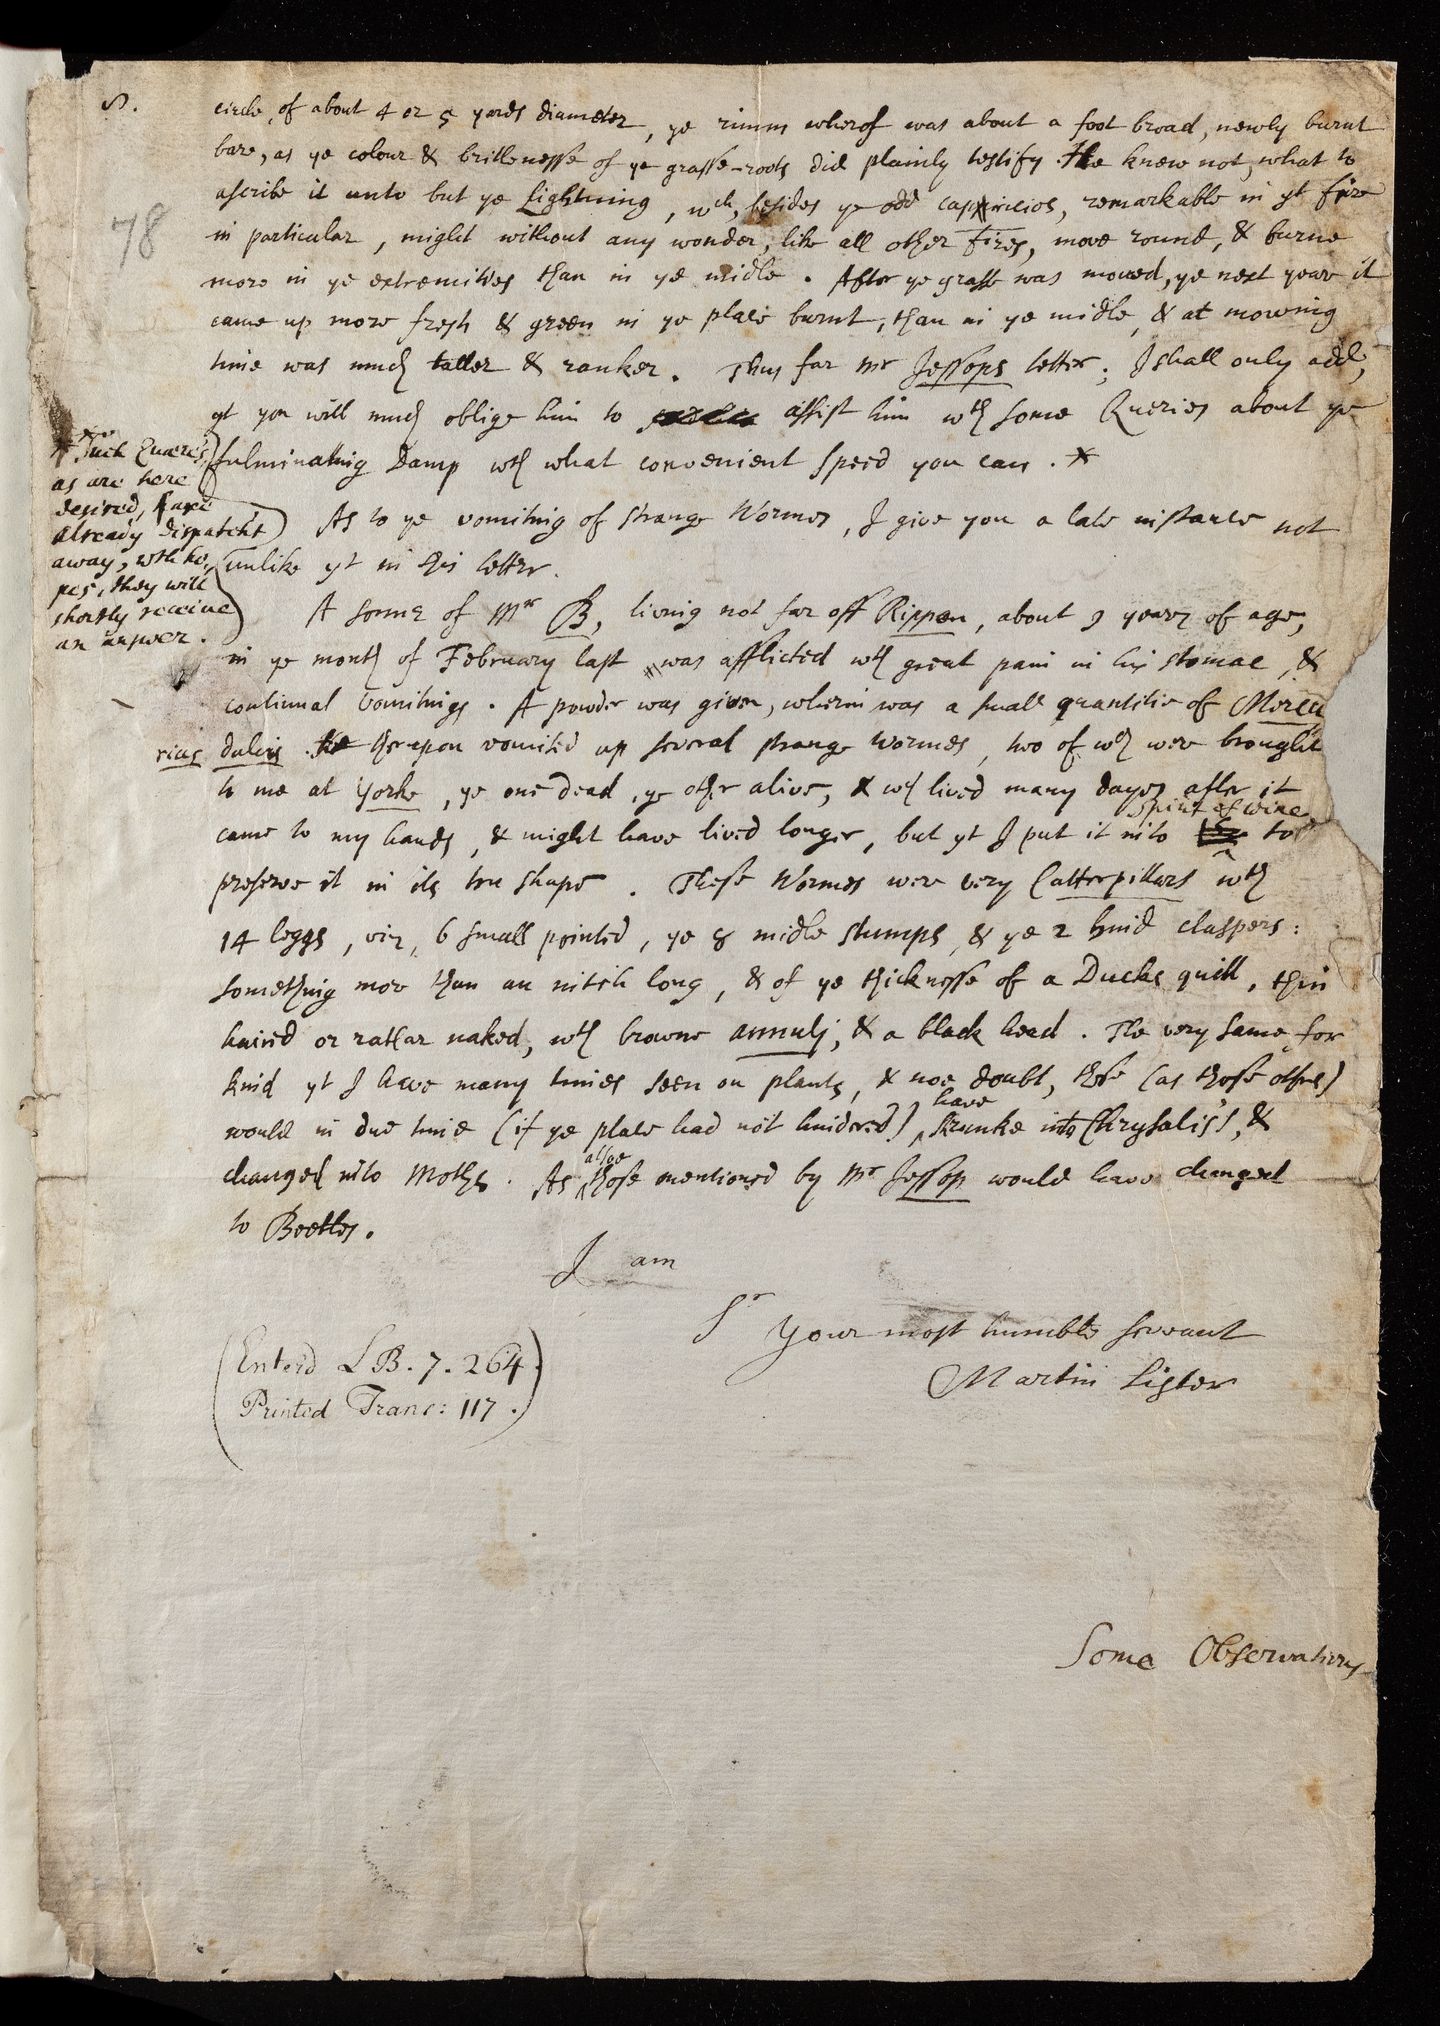 S.
78
circle, of about 4 or 5 yards diameter, ye rimm wherof was about a foot broad, newly burnt
bare, as ye colour & brittlenesse of ye grasse-roots did plainly testify. He knew not, what to
ascribe it unto but ye Lightning, wch, besides ye odd capricios, remarkable in yt fire
in particular, might without any wonder, like all other fires, move round, & burne
more in ye extremities than in ye midle. After ye grasse was mowed, ye next yeare it
came up more fresh & green in ye place burnt, than in ye midle, & at mowing
time was much taller & ranker. Thus far Mr Jessops letter; I shall only add,
yt you will much oblige him to assist him wth some Queries about ye
fulminating Damp wth what convenient speed you can. *
* Such Quaeries,
as are here
desired, are
already dispatcht
away, wth ho-
pes, they will
shortly receive
an answer.
As to ye vomiting of strange Wormes, I give you a late instance not
unlike yt in his letter.
A sonne of Mr B, living not far off Rippon, about 9 yeares of age,
in ye month of February last was afflicted wth great pain in his stomac, &
continual Vomitings. A powder was given, wherin was a small quantitie of Mercu
rius dulcis. He therupon vomited up several strange wormes, two of wch were brought
to me at Yorke, ye one dead, ye other alive, & wch lived many dayes after it
came to my hands, & might have lived longer, but yt I put it into spirit of wine to
preserve it in its tru shape. These Wormes were very Catterpillars wth
14 leggs, viz, 6 small pointed, ye 8 midle stumps, & ye 2 hind claspers:
something more than an intch long, & of ye thicknesse of a Ducks quill, thin
haired or rather naked, wth browne annulj, & a black head. The very same for
kind yt I have many times seen on plants, & noe doubt, these (as those others)
would in due time (if ye place had not hindered) have shrunke into Chrysalis's, &
changed into Moths. As alsoe those mentioned by Mr Jessop would have changed
to Beetles.
I am
Sr Your most humble servant
Martin Lister
(Enterd LB. 7. 264.
Printed Tranc: 117.)
Some Observations